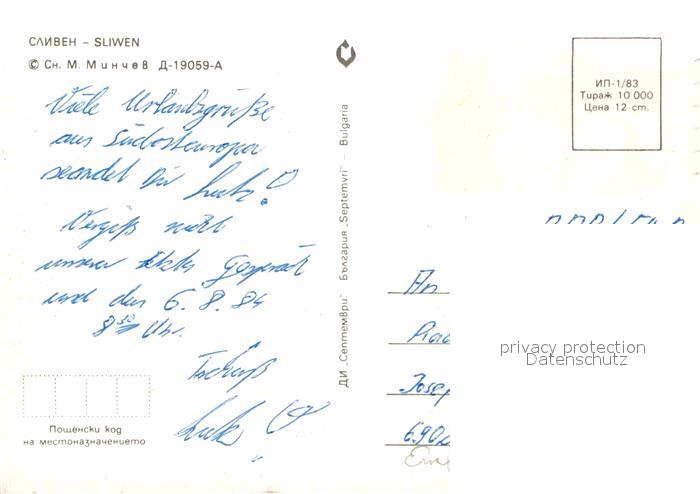 СЛИВЕН – SLIWEN
© Сн. М. Минчев Д-19059-А
Viele Urlaubsgrüße
aus Südosteuropa
sendet Dir Lutz.
Vergiß nicht
unser Gespräch
und den 6.8.84
8³⁰ Uhr.
Tschüß
Lutz
Пощенски код
на местоназначението
ДИ „Септември" – България „Septemvri" – Bulgaria
ИП-1/83
Тираж 10 000
Цена 12 ст.
An
Josep
690
privacy protection
Datenschutz